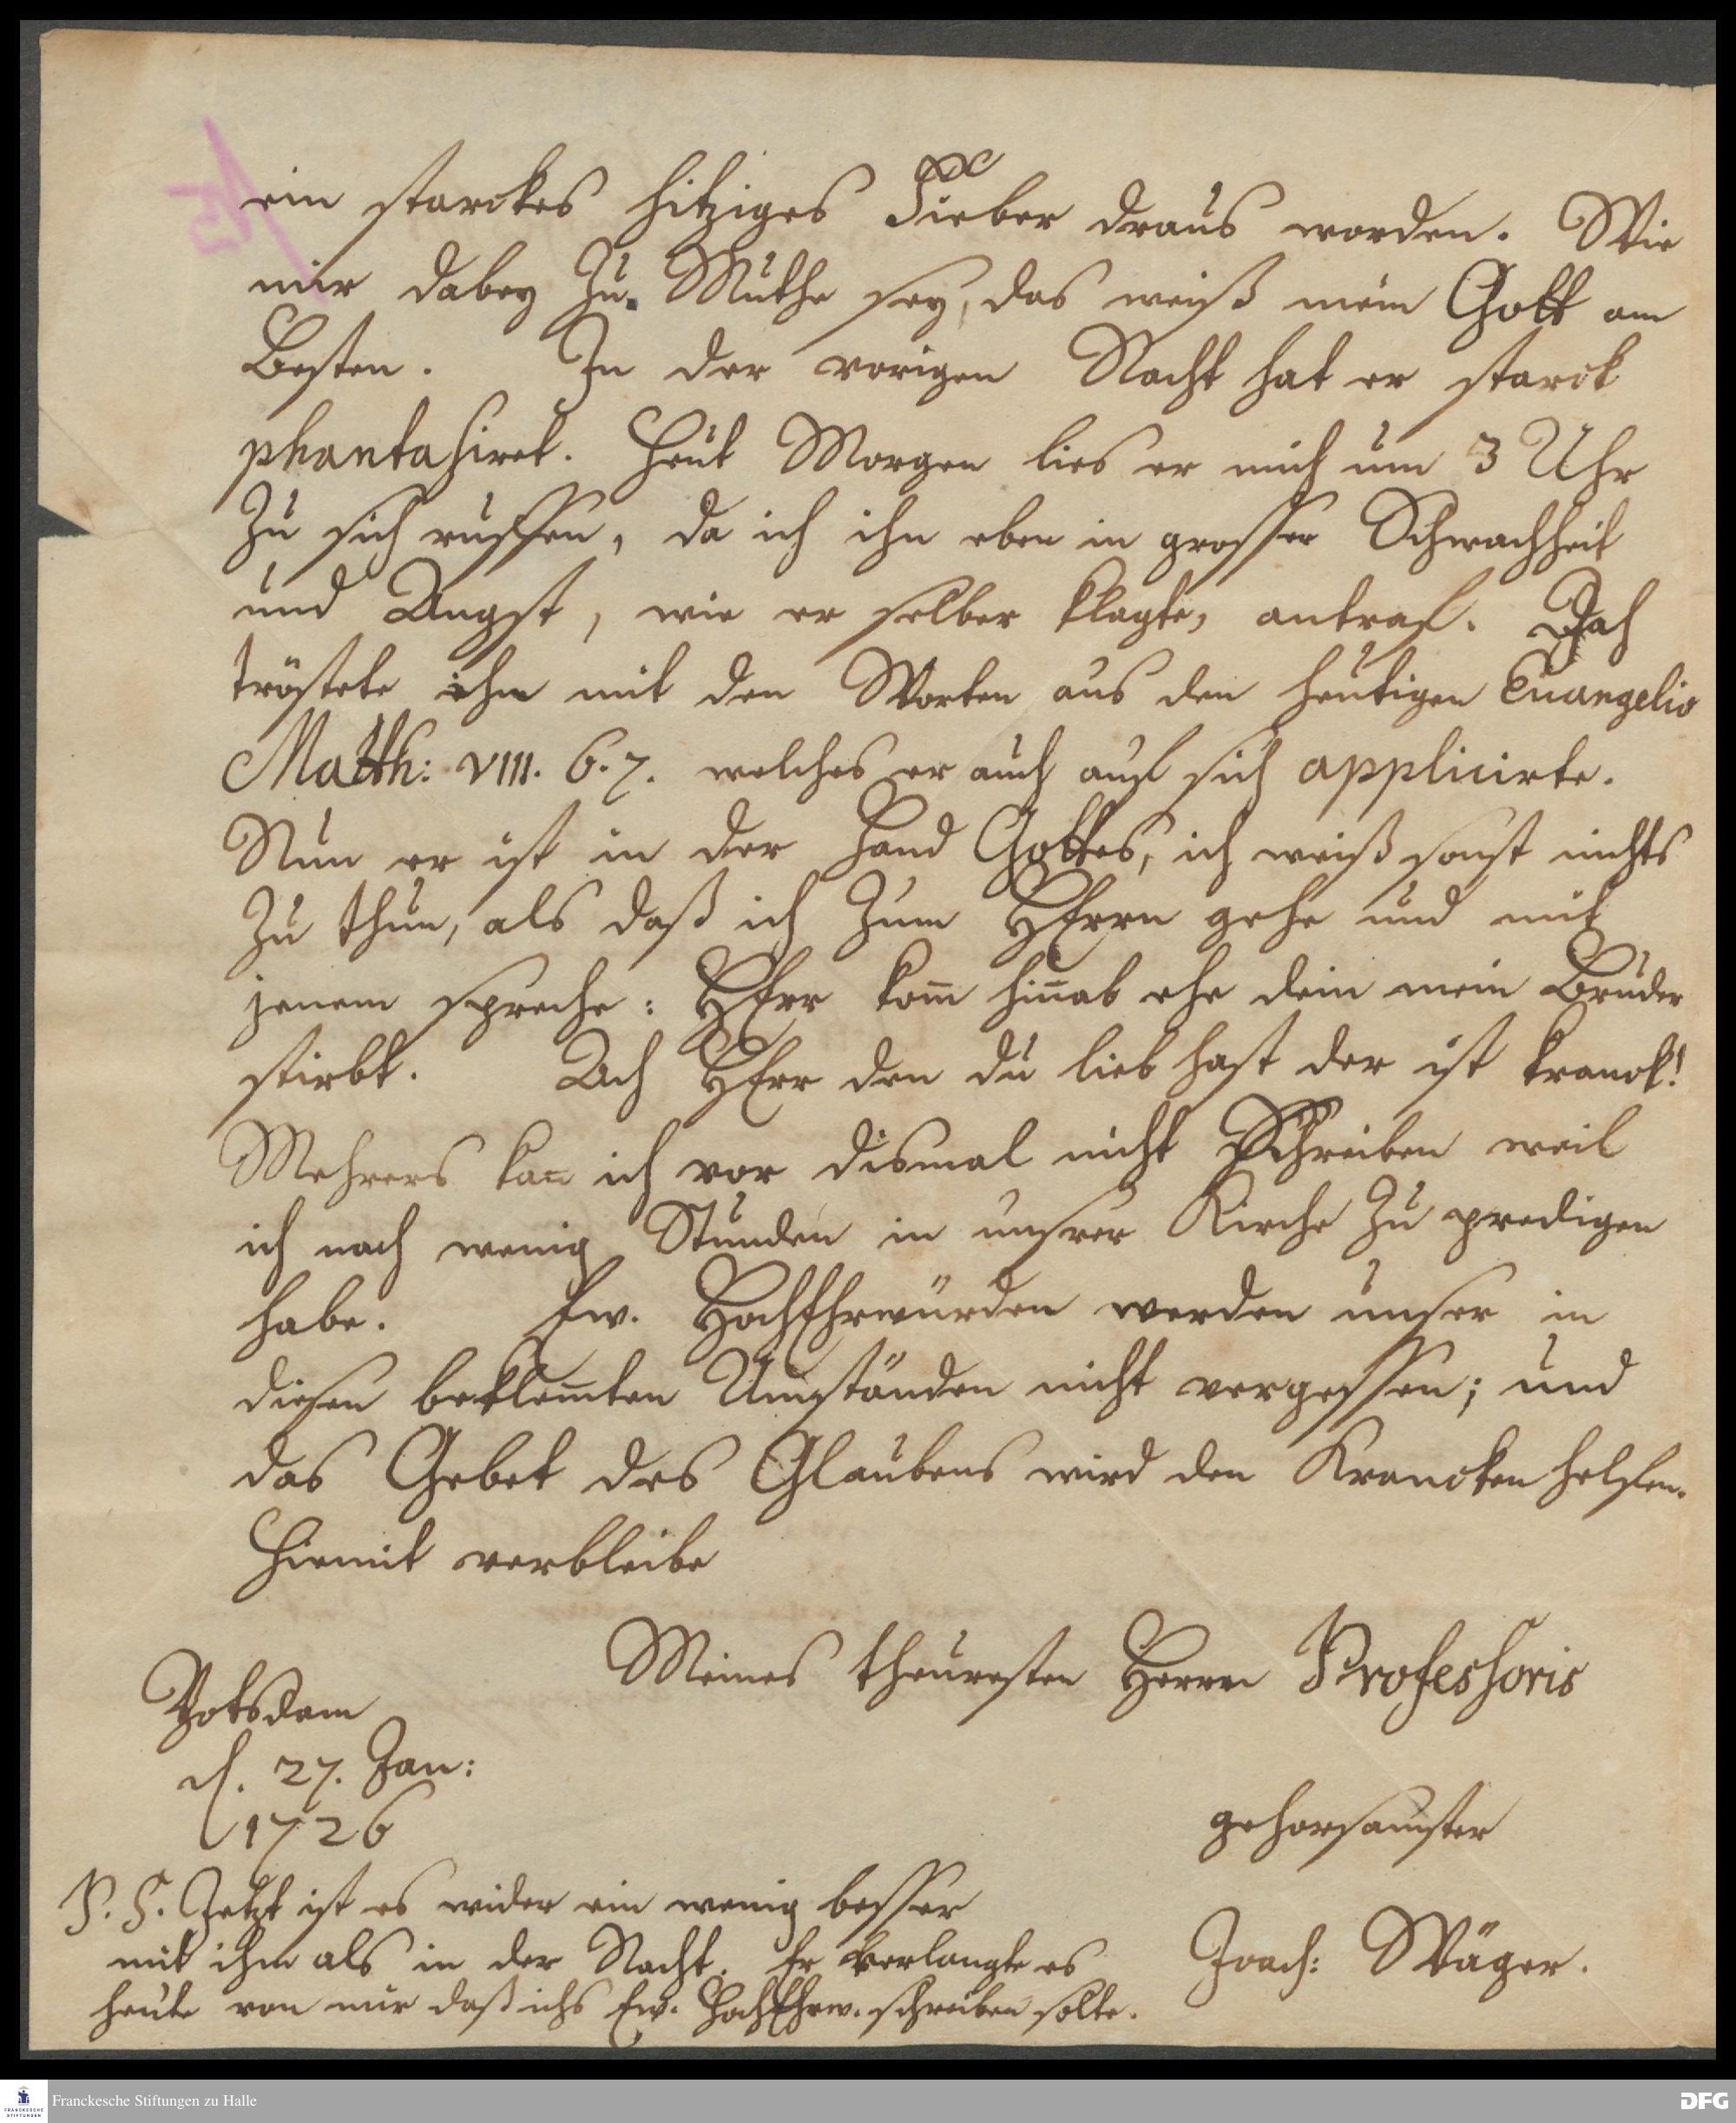 ein starckes hitziges Fieber draus worden. Wie
mir dabey zu Muthe sey, das weiß mein Gott am
Besten. In der vorigen Nacht hat er starck
phantasiret. Heut Morgen lies er mich um 3 Uhr
zu sich ruffen, da ich ihn eben in grosser Schwachheit
und Angst, wie er selber klagte, antraf. Ich
tröstete ihn mit den Worten aus dem heutigen Euangelio
Matth: VIII. 6. 7. welches er auch auf sich applicirte.
Nun er ist in der Hand Gottes, ich weiß sonst nichts
zu thun, als daß ich zum HErrn gehe und mit
jenem spreche: HErr kom̄ hin̄ab ehe dein mein Bruder
stirbt. Ach HErr den du lieb hast der ist kranck!
Mehrers kan̄ ich vor dismal nicht Schreiben weil
ich nach wenig Stunden in unsrer Kirche zu predigen
habe. Ew. HochEhrwürden werden unser in
diesen beklem̄ten Umständen nicht vergessen; und
das Gebet des Glaubens wird dem Krancken helfen.
Hiemit verbleibe
Meines theuresten Herrn Professoris
Potsdam
d. 27. Jan:
1726
gehorsamster
Joach: Wäger.
P. S. Jetzt ist es wider ein wenig besser
mit ihm als in der Nacht. Er verlangte es
heute von mir daß ichs Ew. HochEhrw. schreiben solte.
Franckesche Stiftungen zu Halle
FRANCKESCHE
STIFTUNGEN
DFG